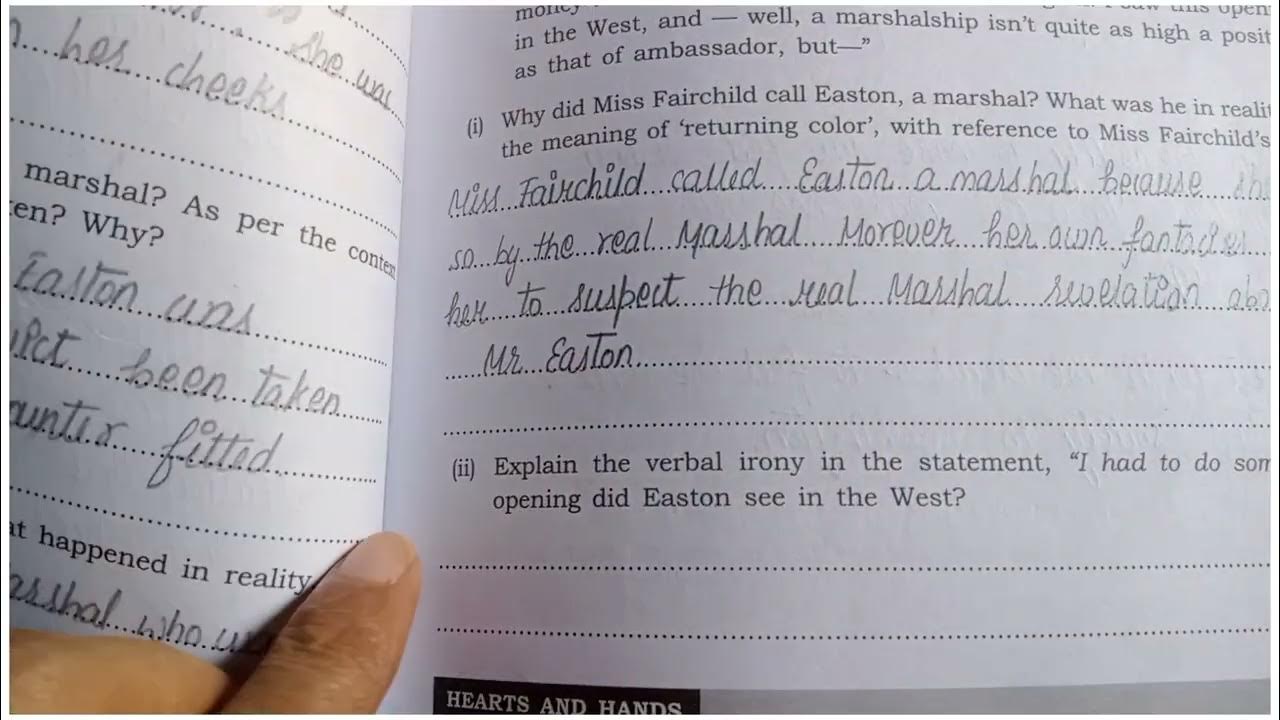 she was
her cheeks
marshal? As per the contex
en? Why?
Easton uns
been taken
fitted
at happened in reality
who
money
in the West, and — well, a marshalship isn't quite as high a posit
as that of ambassador, but—"
(i) Why did Miss Fairchild call Easton, a marshal? What was he in realit
the meaning of 'returning color', with reference to Miss Fairchild's
Miss Fairchild called Easton a marshal because sh
so by the real Masshal Morever her own
her to suspect the real Marshal revelation abo
Mr. Easton
(ii) Explain the verbal irony in the statement, "I had to do som
opening did Easton see in the West?
HEARTS AND HANDS